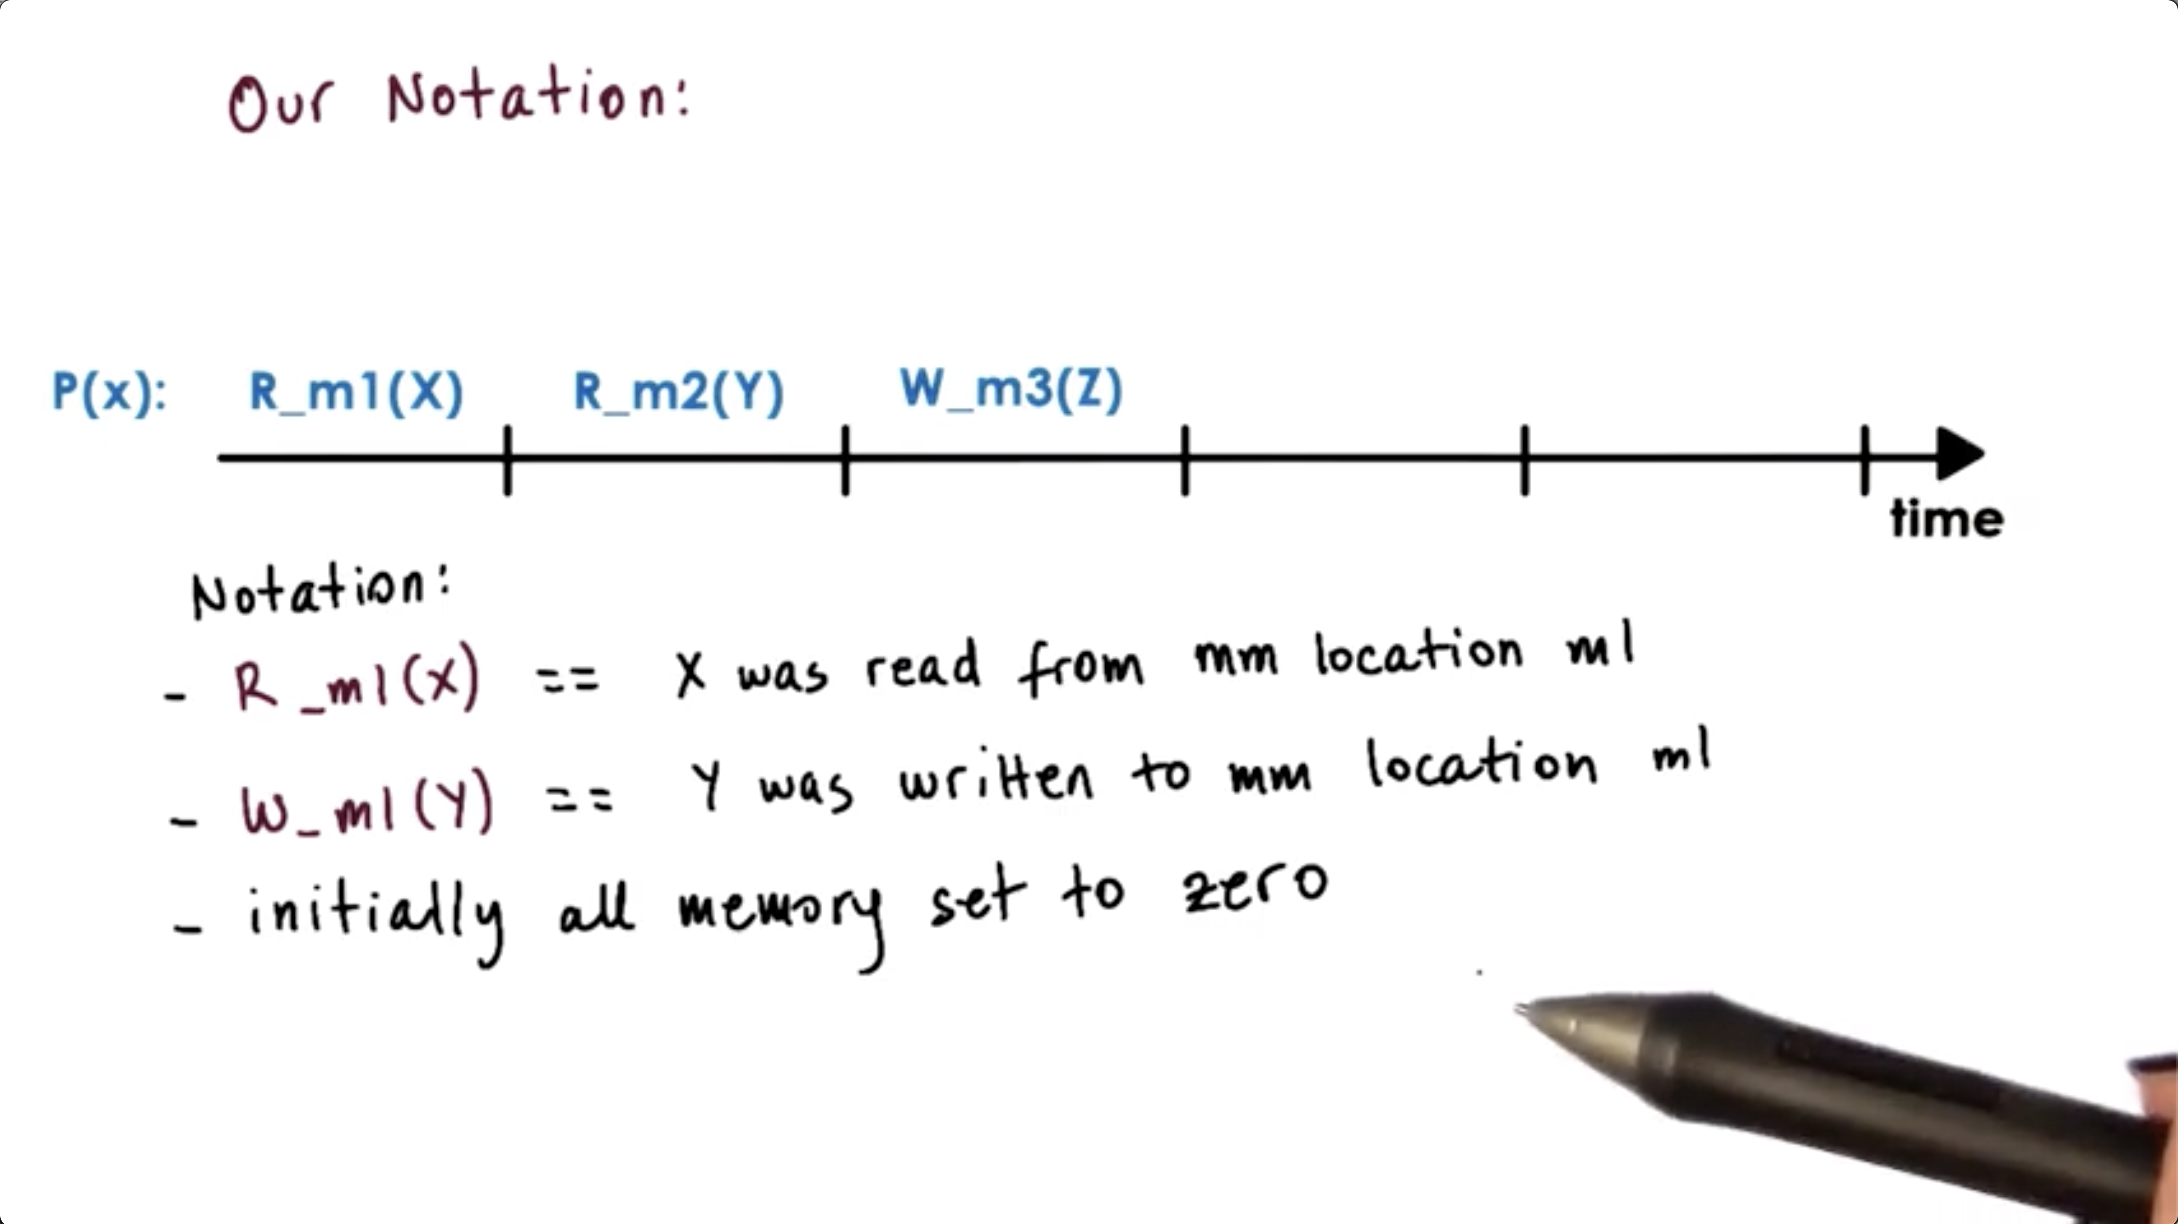 Our Notation:
P(x): R_m1(X) R_m2(Y) W_m3(Z)
time
Notation:
- R_m1(X) == X was read from mm location m1
- W_m1(Y) == Y was written to mm location m1
- initially all memory set to zero